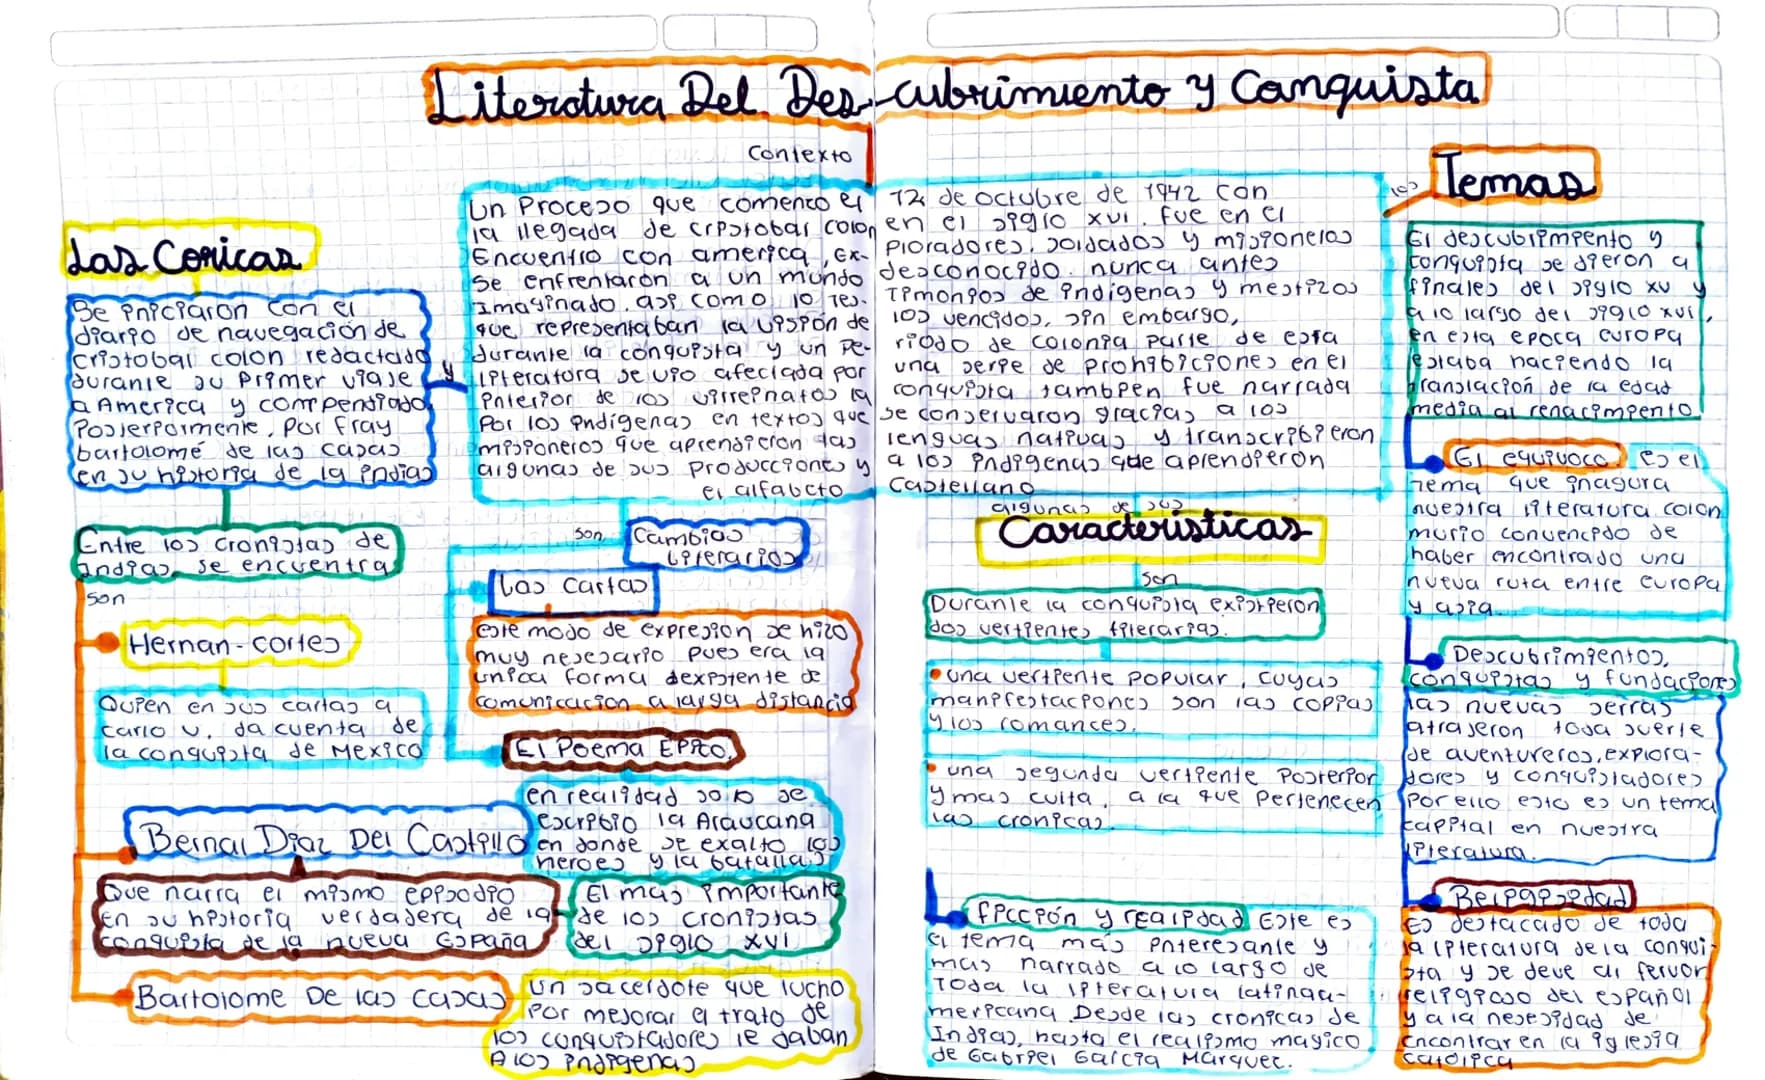 Literatura Del Des-cubrimiento y Conquista
Contexto
Un Proceso que comenco el 12 de octubre de 1942 con
la llegada de cristobal colon en el siglo xvi. fue en el
Encuentro con america, Ex- Ploradores, soldados y misioneros
se enfrentaron a un mundo desconocido. nunca antes
Imaginado. asi como lo Tes- Timonios de indigenas y mestizos
que representaban la vision de los vencidos, sin embargo,
durante la conquista y un pe- riodo de colonia parte de esta
literatura se vio afectada por una serie de prohibiciones en el
interior de los virreinatos la conquista tambien fue narrada
Por los indigenas en textos que se conservaron gracias a los
misioneros que aprendieron las lenguas nativas y transcribieron
algunas de sus producciones y a los indigenas que aprendieron
el alfabeto Castellano
algunas de sus
Las Conicas
Se iniciaron con el
diario de navegación de
cristobal colon redactado
durante su Primer viaje
a America y compendiado
Posteriormente, por fray
bartolomé de las casas
en su historia de la indias
y
Entre los cronistas de
indias se encuentra
son
Hernan-cortes
Quien en sus cartas a
carlo v, da cuenta de
la conquista de Mexico
Bernal Diaz Del Castillo
Que narra el mismo episodio
en su historia verdadera de la
conquista de la nueva España
El mas importante
de los cronistas
del siglo xvi
Bartolome De las casas
un sacerdote que lucho
Por mejorar el trato de
los conquistadores le daban
A los indigenas
son
Cambios
literarios
Las Cartas
este modo de expresion se hizo
muy nesesario pues era la
unica forma dexistente de
comunicacion a larga distancia
El Poema Epico.
en realidad solo se
escribio la Araucana
en donde se exalto los
heroes y la batallas
Caracteristicas
son
Durante la conquista existieron
dos vertientes literarias.
• una vertiente popular, cuyas
manifestaciones son las coplas
y los romances.
• una segunda vertiente Posterior
y mas culta, a la que Pertenecen
las cronicas.
ficción y realidad Este es
el tema más interesante y
mas narrado a lo largo de
Toda la literatura latinoa-
mericana Desde las cronicas de
Indias, hasta el realismo magico
de Gabriel García Marquec.
los
Temas
El descubrimiento y
conquista se dieron a
finales del siglo xv y
a lo largo del siglo xvi,
en esta epoca europa
estaba naciendo la
translación de la edad
media al renacimiento
El equivoco. es el
Tema que inagura
nuestra literatura colon
murio convencido de
haber encontrado una
nueva ruta entre europa
y asia.
Descubrimientos,
conquistas y fundaciones
las nuevas serras
atrajeron toda suerte
de aventureros, explora-
dores y conquistadores
Por ello esto es un tema
capital en nuestra
literatura.
Es destacado de toda
la literatura de la conqui-
sta y se debe al fervor
religioso del español
y a la nesesidad de
encontrar en la iglesia
catolica